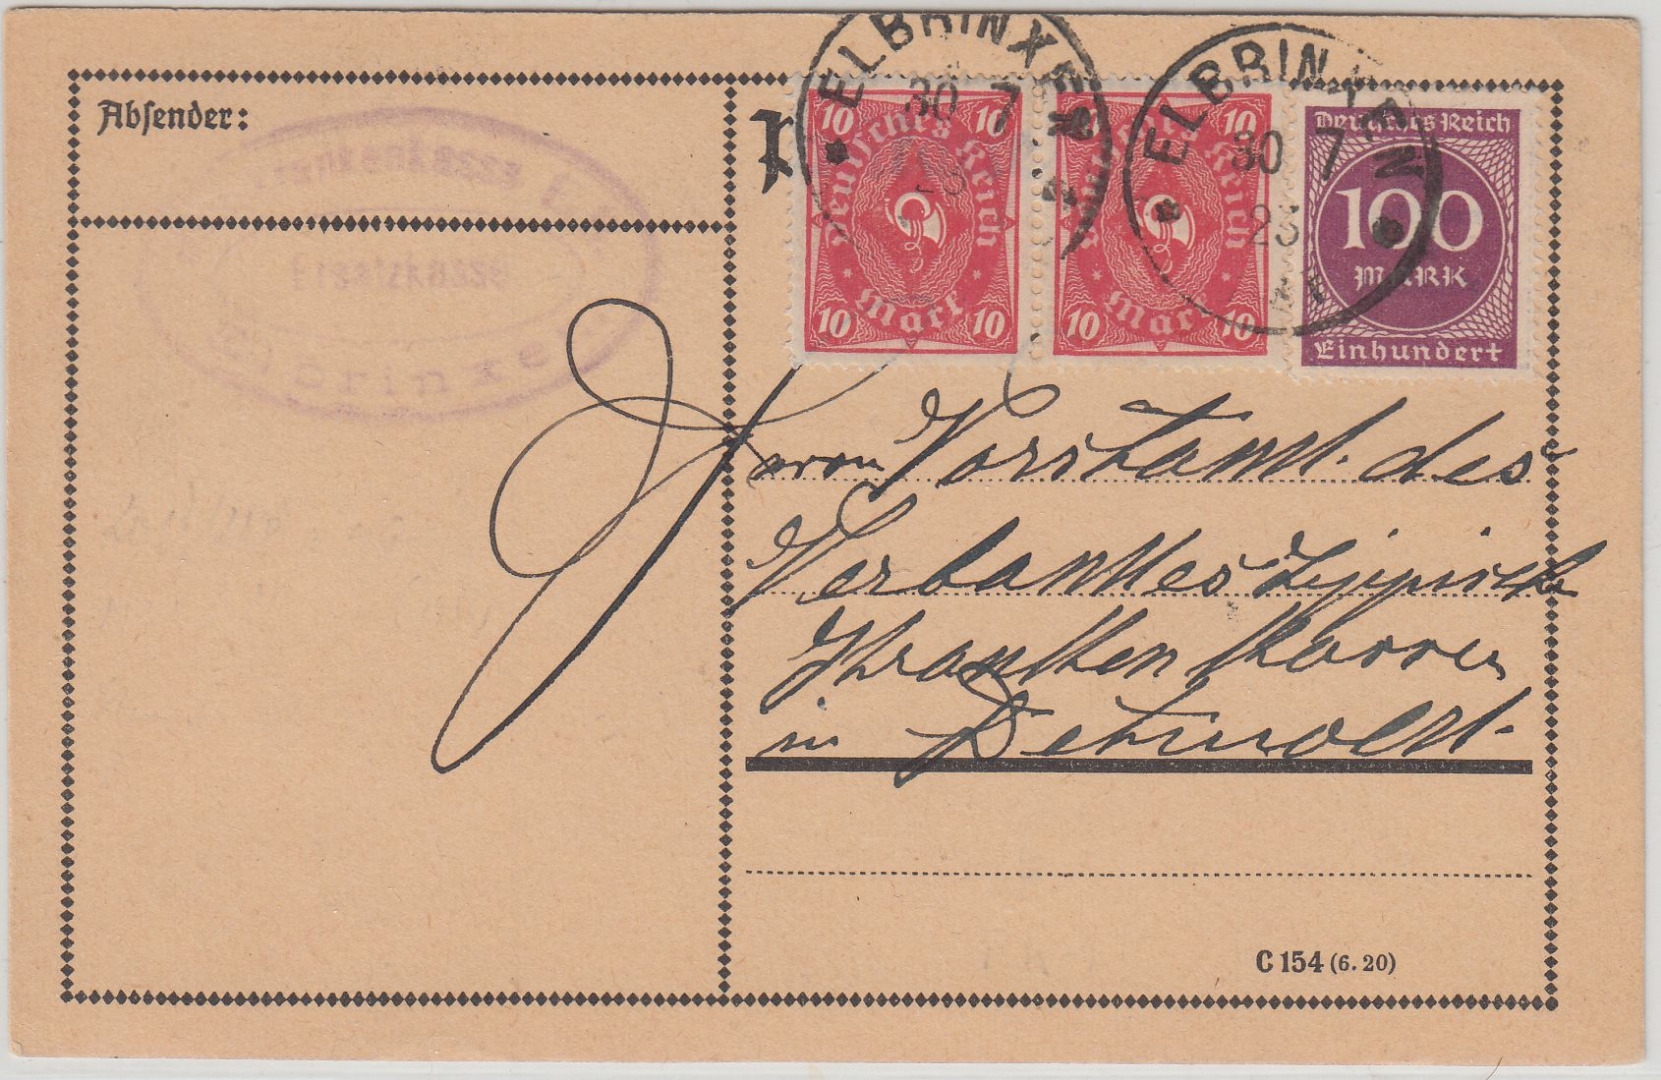 Absender:
Ersatzkasse
ELBRINXEN
30 7
23
ELBRINXEN
30 7
23
10 10
Deutsches Reich
Mark
10 10
10 10
Deutsches Reich
Mark
10 10
Deutsches Reich
100
MARK
Einhundert
Vorstand des
Verbandes Lippische
Krankenkassen
in Detmold
C 154 (6. 20)